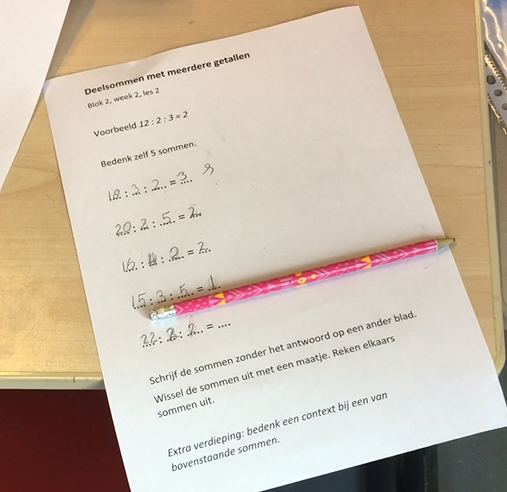 Deelsommen met meerdere getallen
Blok 2, week 2, les 2
Voorbeeld 12 : 2 : 3 = 2
Bedenk zelf 5 sommen.
18 : 3 : 2 = 3
20 : 2 : 5 = 2
16 : 4 : 2 = 2
15 : 3 : 5 = 1
22 : : 2 = ....
Schrijf de sommen zonder het antwoord op een ander blad.
Wissel de sommen uit met een maatje. Reken elkaars
sommen uit.
Extra verdieping: bedenk een context bij een van
bovenstaande sommen.